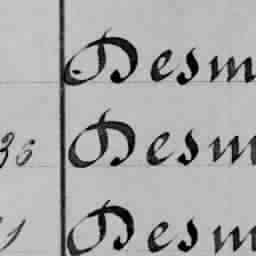 Desm
36 Desm
Desm